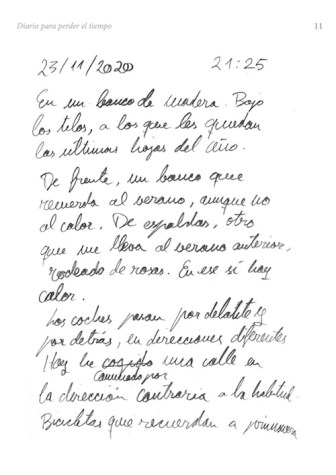 Diario para perder el tiempo 11
23/11/2020 21:25
En un banco de madera. Bajo
los tilos, a los que les quedan
las últimas hojas del año.
De frente, un banco que
recuerda al verano, aunque no
al calor. De espaldas, otro
que me lleva al verano anterior,
rodeado de rosas. En ese sí hay
calor.
Los coches pasan por delante y
por detrás, en direcciones diferentes
Hoy he cogido una calle en
caminado por
la dirección contraria a la habitual.
Bicicletas que recuerdan a primavera